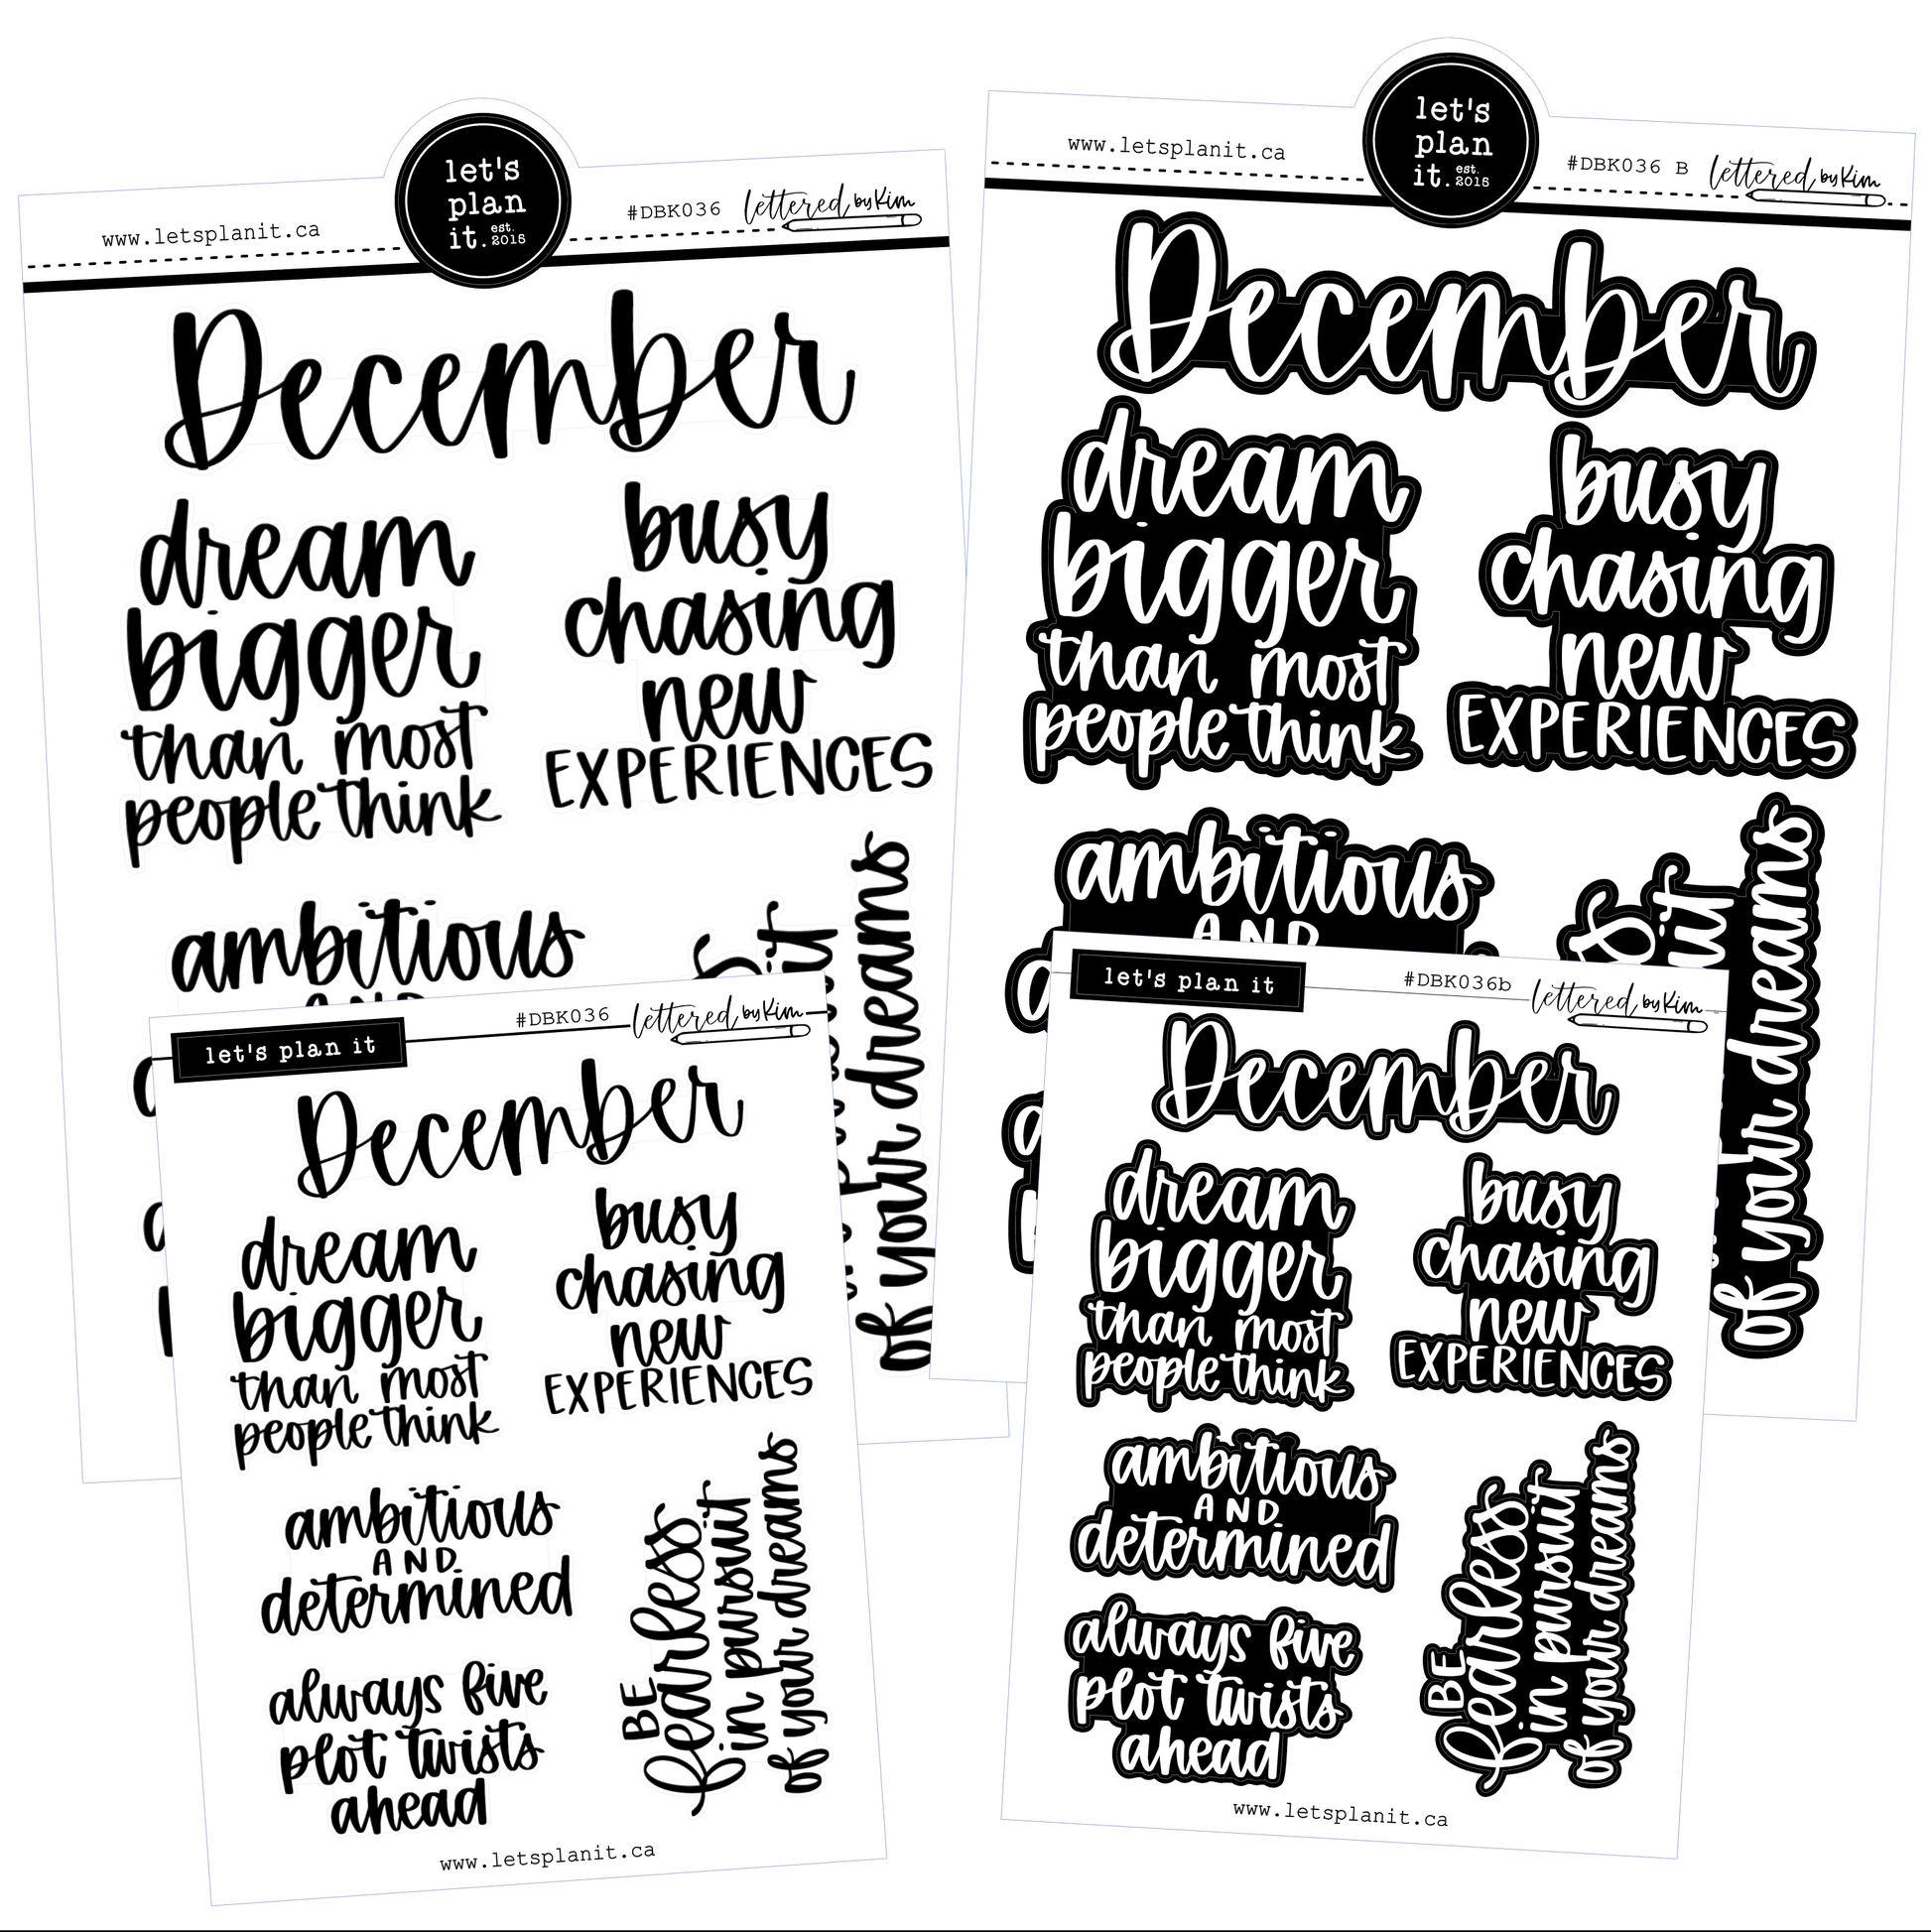 let's
plan
it. est. 2015
www.letsplanit.ca
#DBK036
lettered by Kim
December
dream
bigger
than most
people think
busy
chasing
new
EXPERIENCES
ambitious
AND
of your dreams
let's
plan
it. est. 2015
www.letsplanit.ca
#DBK036 B
lettered by Kim
December
dream
bigger
than most
people think
busy
chasing
new
EXPERIENCES
ambitious
AND
of your dreams
let's plan it
#DBK036
lettered by Kim
December
dream
bigger
than most
people think
busy
chasing
new
EXPERIENCES
ambitious
AND
determined
always five
plot twists
ahead
BE
fearless
in pursuit
of your dreams
www.letsplanit.ca
let's plan it
#DBK036b
lettered by Kim
December
dream
bigger
than most
people think
busy
chasing
new
EXPERIENCES
ambitious
AND
determined
always five
plot twists
ahead
BE
fearless
in pursuit
of your dreams
www.letsplanit.ca